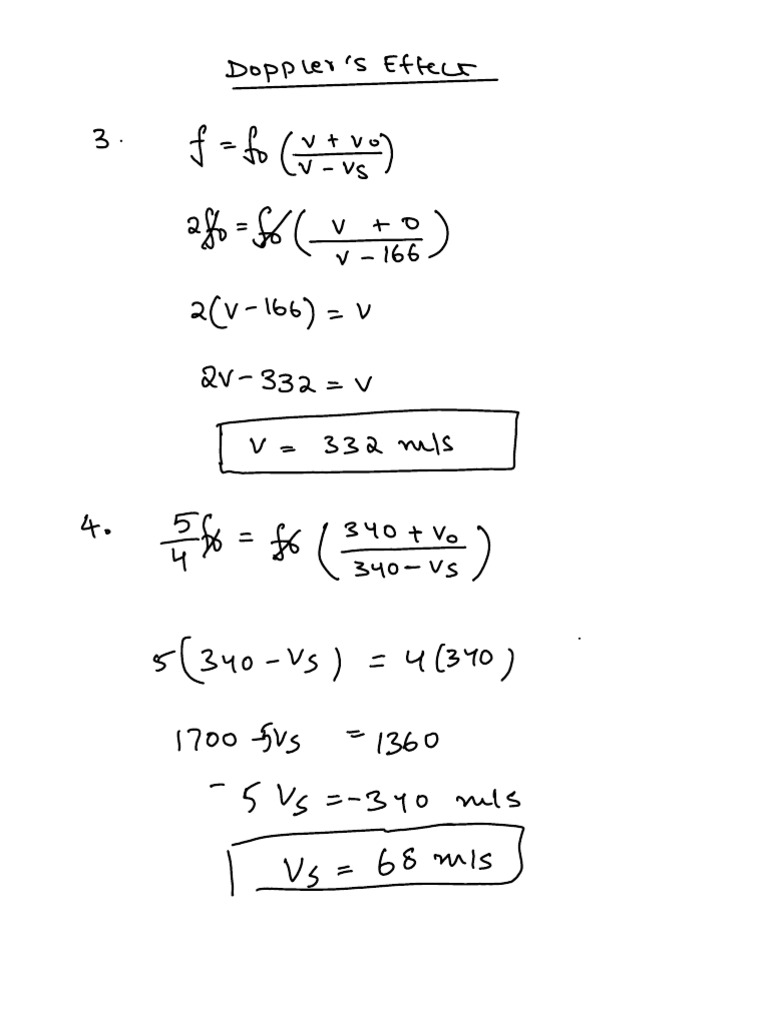 Doppler's Effect
3. f = f₀ (v + v₀ / v - vs)
2f₀ = f₀ (v + 0 / v - 166)
2(v - 166) = v
2v - 332 = v
v = 332 m/s
4. 5/4 f₀ = f₀ (340 + v₀ / 340 - vs)
5(340 - vs) = 4(340)
1700 - 5vs = 1360
- 5 vs = -340 m/s
vs = 68 m/s